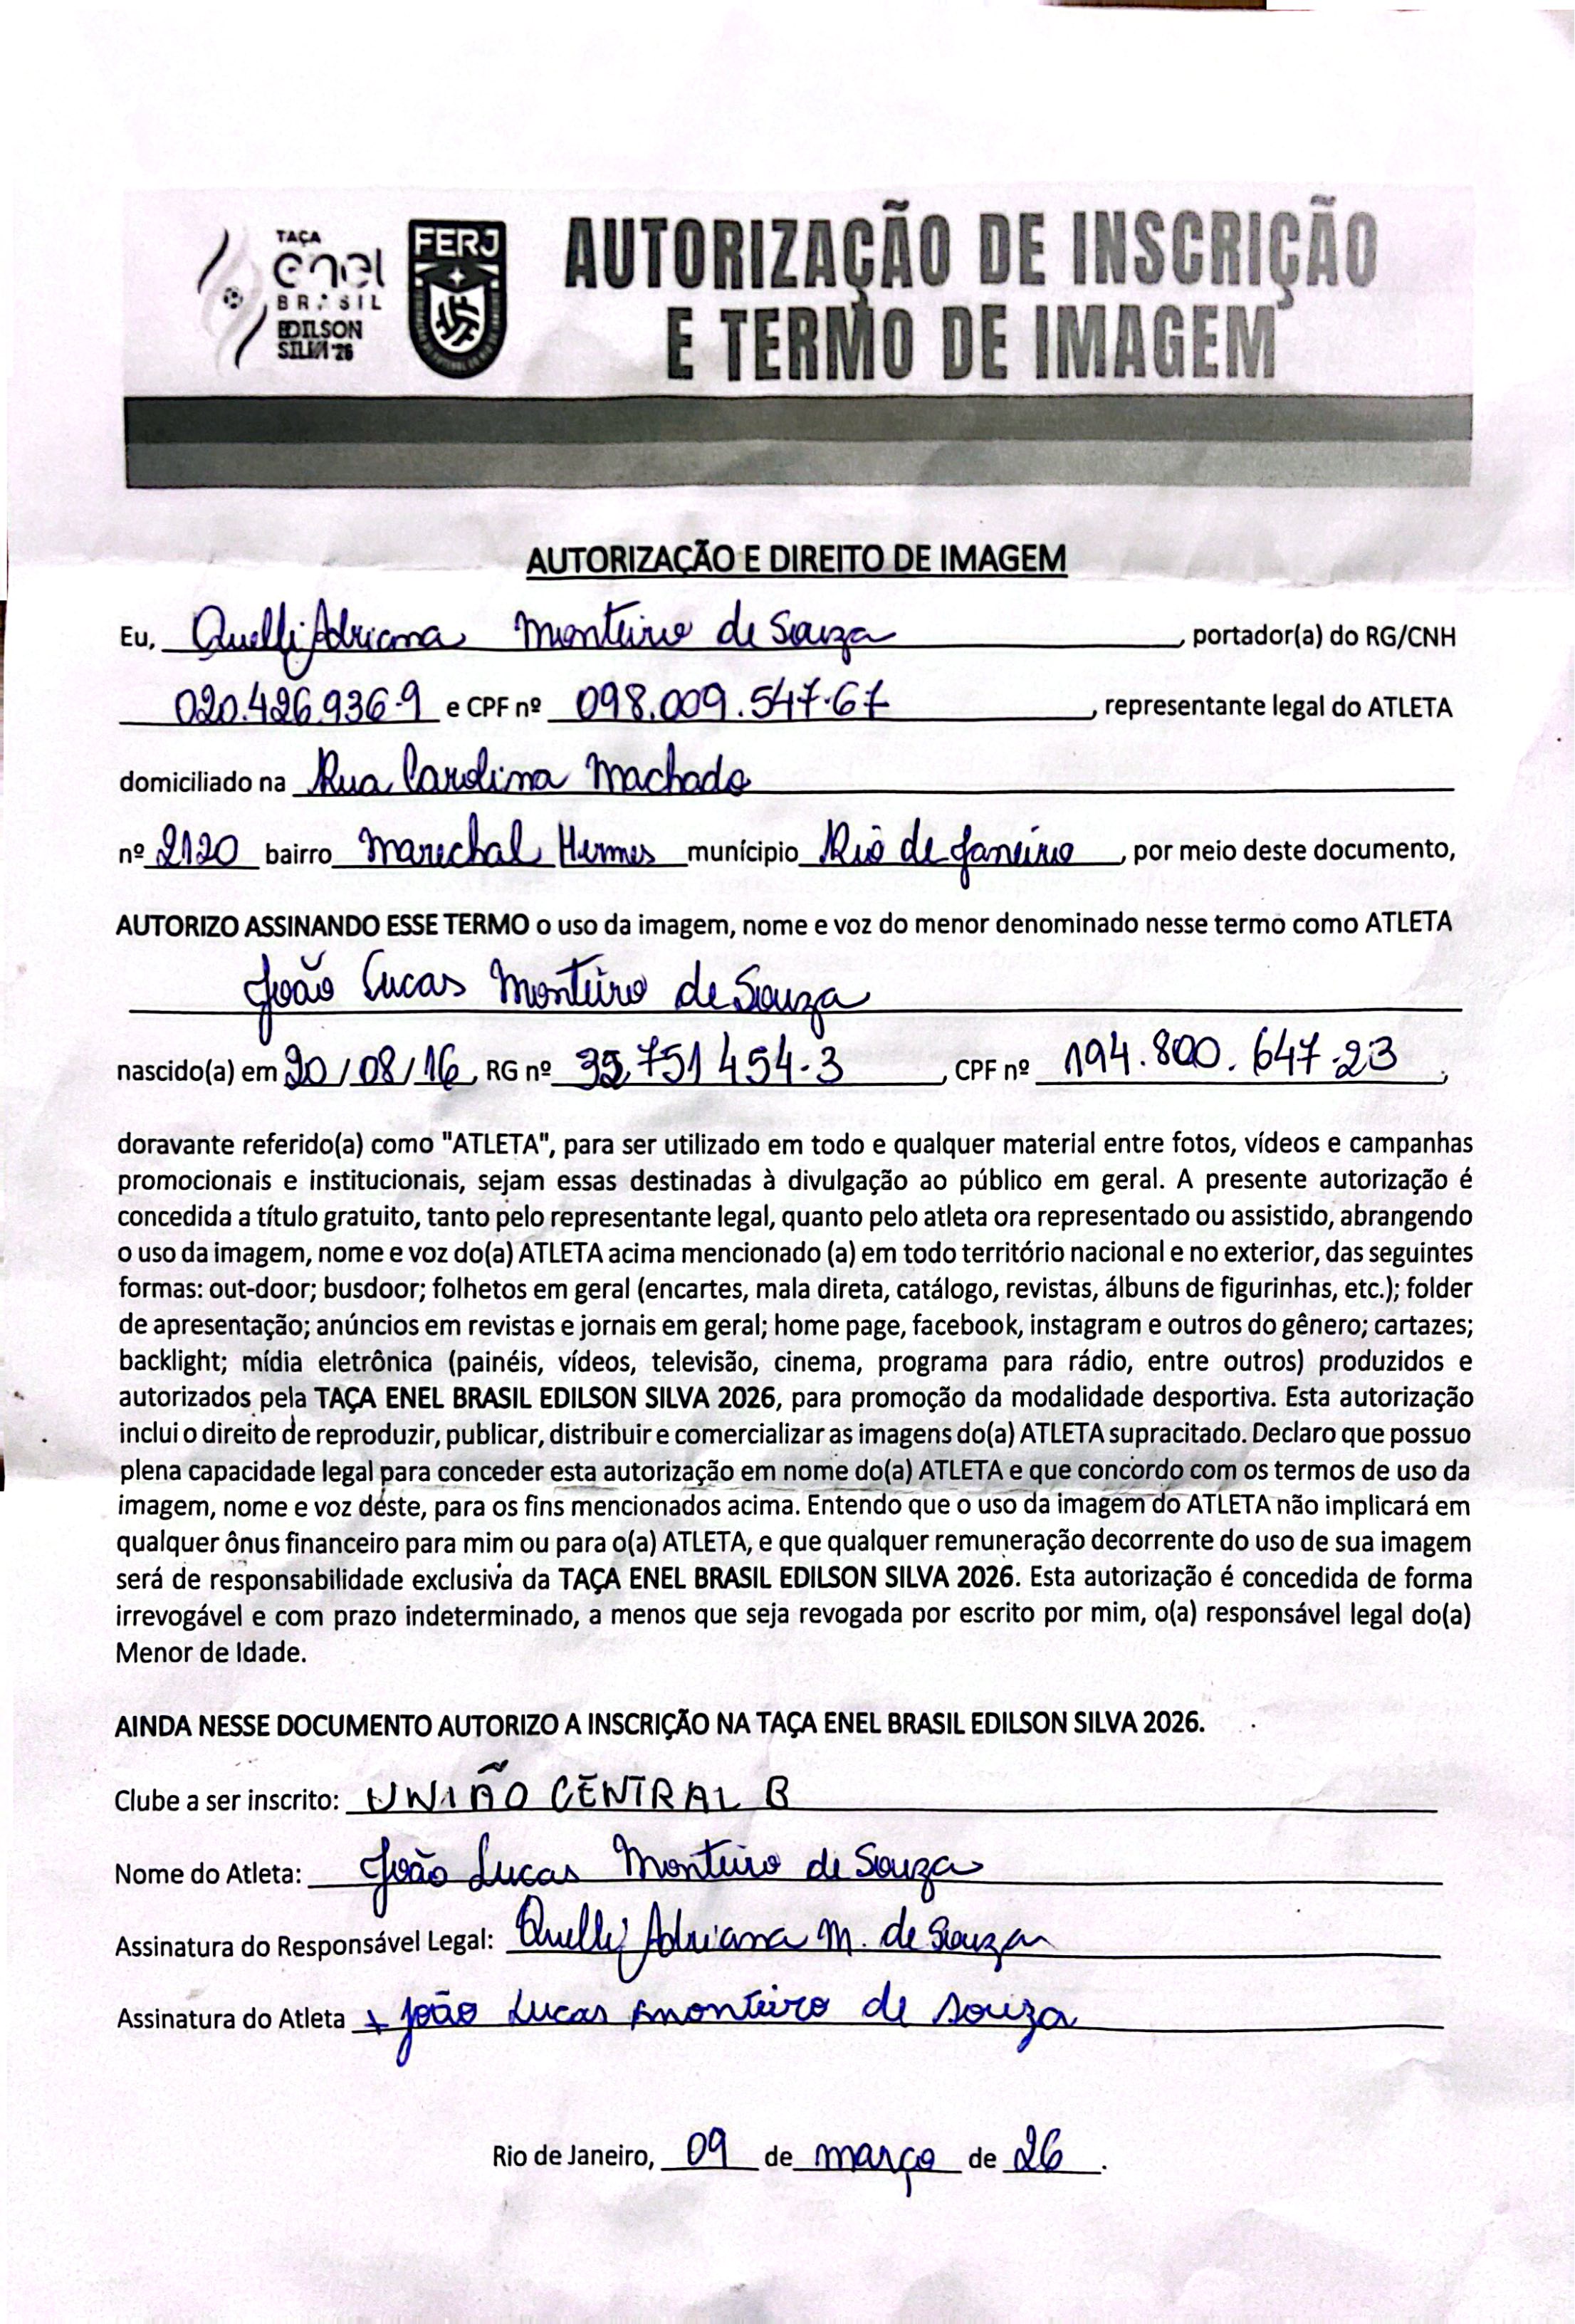 TAÇA
enel
BRASIL
EDILSON
SILVA '26
FERJ
AUTORIZAÇÃO DE INSCRIÇÃO
E TERMO DE IMAGEM
AUTORIZAÇÃO E DIREITO DE IMAGEM
Eu, Quelli Adriana Monteiro de Souza, portador(a) do RG/CNH
020.426.936-9 e CPF nº 098.009.547-67, representante legal do ATLETA
domiciliado na Rua Carolina Machado
nº 2120 bairro Marechal Hermes munícipio Rio de Janeiro, por meio deste documento,
AUTORIZO ASSINANDO ESSE TERMO o uso da imagem, nome e voz do menor denominado nesse termo como ATLETA
João Lucas Monteiro de Souza
nascido(a) em 20/08/16, RG nº 751454-3, CPF nº 194.800.647-23,
doravante referido(a) como "ATLETA", para ser utilizado em todo e qualquer material entre fotos, vídeos e campanhas
promocionais e institucionais, sejam essas destinadas à divulgação ao público em geral. A presente autorização é
concedida a título gratuito, tanto pelo representante legal, quanto pelo atleta ora representado ou assistido, abrangendo
o uso da imagem, nome e voz do(a) ATLETA acima mencionado (a) em todo território nacional e no exterior, das seguintes
formas: out-door; busdoor; folhetos em geral (encartes, mala direta, catálogo, revistas, álbuns de figurinhas, etc.); folder
de apresentação; anúncios em revistas e jornais em geral; home page, facebook, instagram e outros do gênero; cartazes;
backlight; mídia eletrônica (painéis, vídeos, televisão, cinema, programa para rádio, entre outros) produzidos e
autorizados pela TAÇA ENEL BRASIL EDILSON SILVA 2026, para promoção da modalidade desportiva. Esta autorização
inclui o direito de reproduzir, publicar, distribuir e comercializar as imagens do(a) ATLETA supracitado. Declaro que possuo
plena capacidade legal para conceder esta autorização em nome do(a) ATLETA e que concordo com os termos de uso da
imagem, nome e voz deste, para os fins mencionados acima. Entendo que o uso da imagem do ATLETA não implicará em
qualquer ônus financeiro para mim ou para o(a) ATLETA, e que qualquer remuneração decorrente do uso de sua imagem
será de responsabilidade exclusiva da TAÇA ENEL BRASIL EDILSON SILVA 2026. Esta autorização é concedida de forma
irrevogável e com prazo indeterminado, a menos que seja revogada por escrito por mim, o(a) responsável legal do(a)
Menor de Idade.
AINDA NESSE DOCUMENTO AUTORIZO A INSCRIÇÃO NA TAÇA ENEL BRASIL EDILSON SILVA 2026.
Clube a ser inscrito: UNIÃO CENTRAL B
Nome do Atleta: João Lucas Monteiro de Souza
Assinatura do Responsável Legal: Quelli Adriana M. de Souza
Assinatura do Atleta x João Lucas monteiro de souza
Rio de Janeiro, 09 de março de 26.